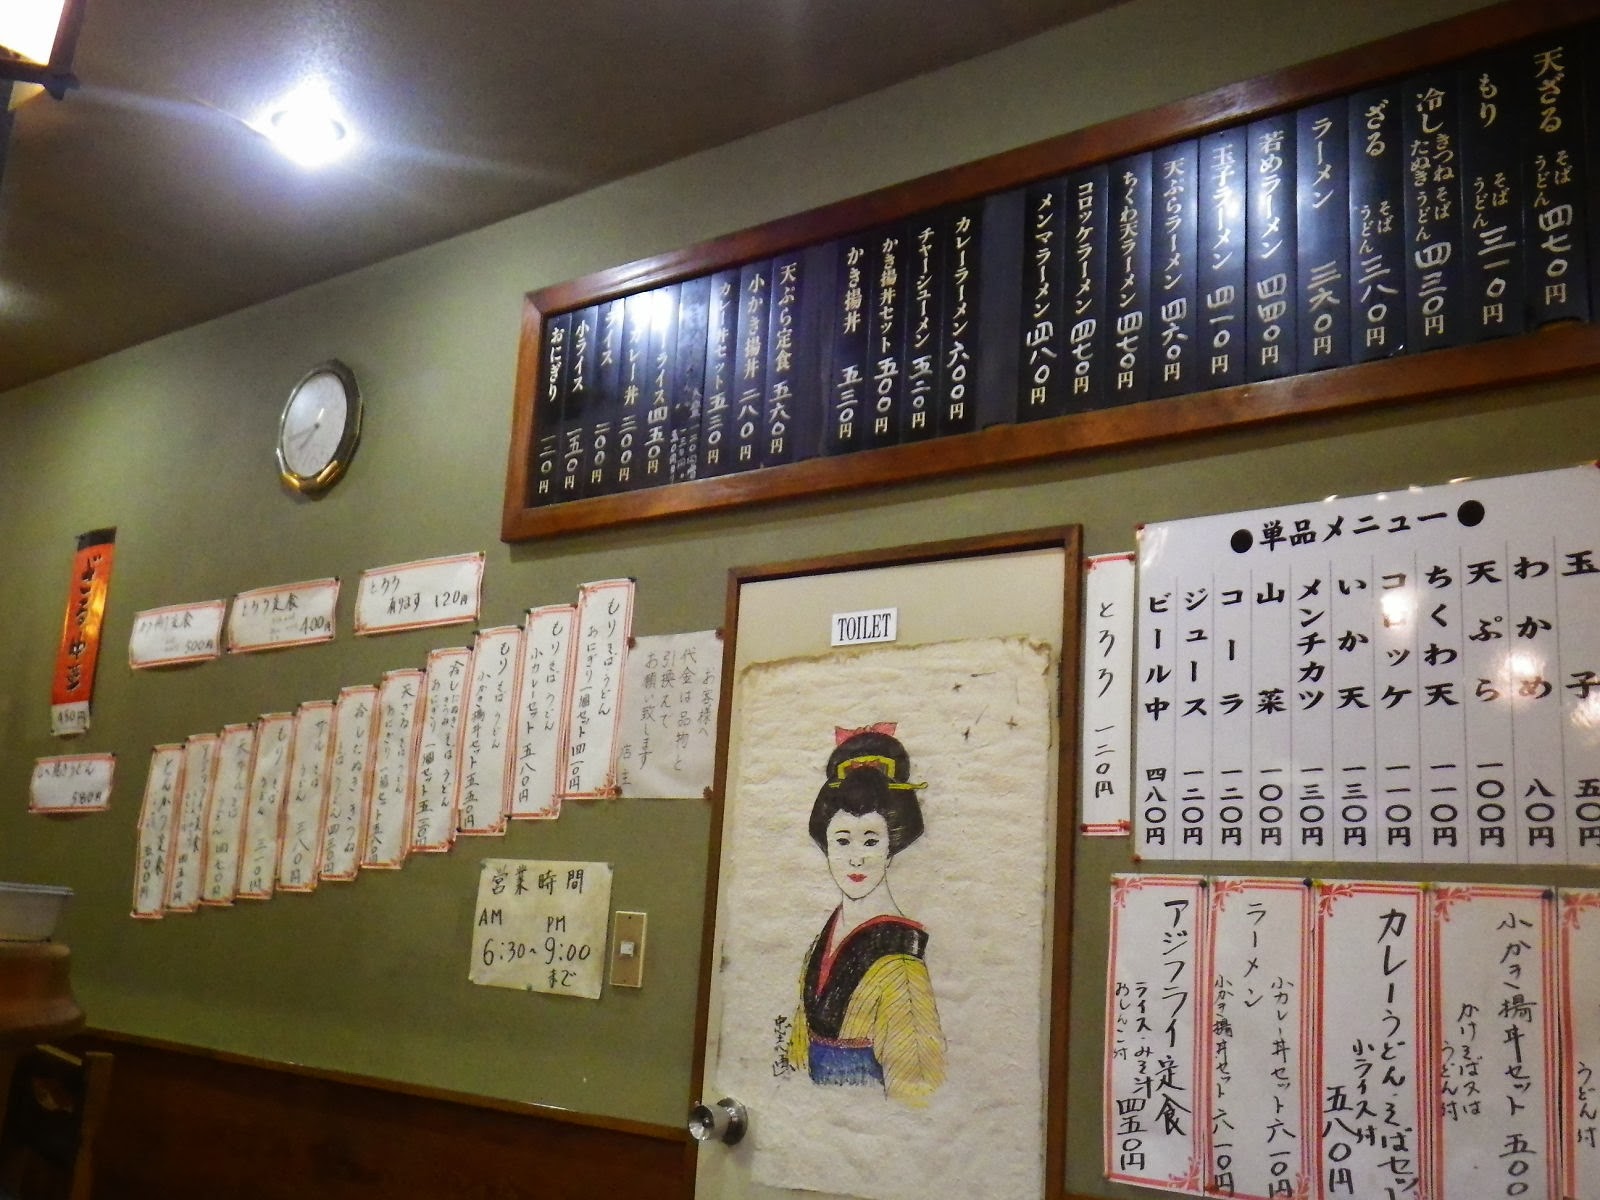 天ざる そば うどん 四七〇円
もり そば うどん 三一〇円
冷し きつねそば たぬきうどん 四三〇円
ざる そば うどん 三八〇円
ラーメン 三六〇円
若めラーメン 四四〇円
玉子ラーメン 四一〇円
天ぷらラーメン 四六〇円
ちくわ天ラーメン 四七〇円
コロッケラーメン 四七〇円
メンマラーメン 四八〇円
カレーラーメン 六〇〇円
チャーシューメン 五二〇円
かき揚丼セット 五〇〇円
かき揚丼 五三〇円
天ぷら定食 五六〇円
小かき揚丼 二八〇円
カレー丼セット 五三〇円
ライス 四五〇円
カレー丼 三〇〇円
ライス 二〇〇円
小ライス 一五〇円
おにぎり 一二〇円
●単品メニュー●
玉子 五〇円
わかめ 八〇円
天ぷら 一〇〇円
ちくわ天 一一〇円
コロッケ 一一〇円
いか天 一三〇円
メンチカツ 一三〇円
山菜 一〇〇円
コーラ 一二〇円
ジュース 一二〇円
ビール中 四八〇円
とろろ 一二〇円
TOILET
忠志画
お客様へ
代金は品物と
引換えで
お願い致します
店主
とろろ
有ります 120円
とろろ定食
400円
500円
450円
580円
もりそばうどん
おにぎり一個セット 四一〇円
もりそば うどん
小カレーセット 五八〇円
もりそば うどん
小かき揚丼セット 五五〇円
冷したぬききつねそばうどん
おにぎり一個セット 五三〇円
天ざるそばうどん
おにぎり一個セット 五七〇円
冷したぬききつね
そばうどん 四三〇円
ザル そば うどん 三八〇円
もり そば うどん 三一〇円
天ザル そば うどん 四七〇円
四五〇円
とんかつ定食
五〇〇円
営業時間
AM PM
6:30~9:00
まで
うどん付
小かき揚丼セット 五〇〇
かけそば又は
うどん付
カレーうどん・そばセット
小ライス付
五八〇円
ラーメン
小カレー丼セット 六一〇円
小かき揚丼セット 六一〇円
アジフライ定食
ライス・みそ汁
おしんこ付
四五〇円